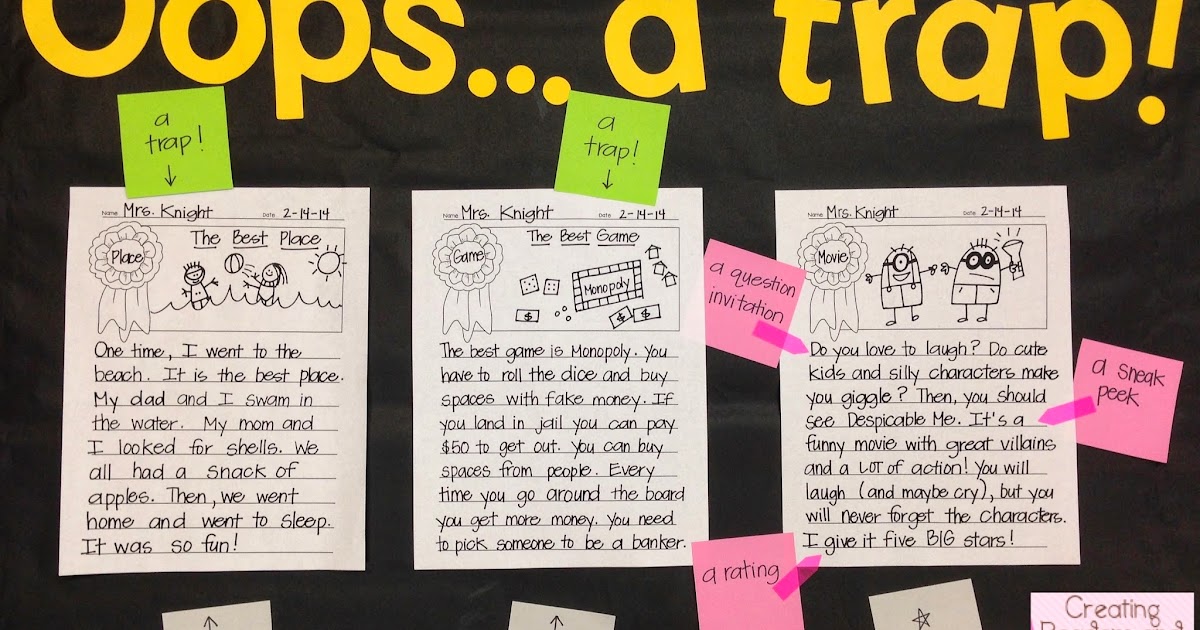 Oops... a trap!
a
trap!
↓
Name Mrs. Knight Date 2-14-14
Place
The Best Place
One time, I went to the
beach. It is the best place.
My dad and I swam in
the water. My mom and
I looked for shells. We
all had a snack of
apples. Then, we went
home and went to sleep.
It was so fun!
a
trap!
↓
Name Mrs. Knight Date 2-14-14
Game
The Best Game
Monopoly
$
$
$
The best game is Monopoly. You
have to roll the dice and buy
spaces with fake money. If
you land in jail you can pay
$50 to get out. You can buy
spaces from people. Every
time you go around the board
you get more money. You need
to pick someone to be a banker.
a question
invitation
Name Mrs. Knight Date 2-14-14
Movie
Do you love to laugh? Do cute
kids and silly characters make
you giggle? Then, you should
see Despicable Me. It's a
funny movie with great villains
and a LOT of action! You will
laugh (and maybe cry), but you
will never forget the characters.
I give it five BIG stars!
a sneak
peek
a rating
↑
↑
☆
Creating